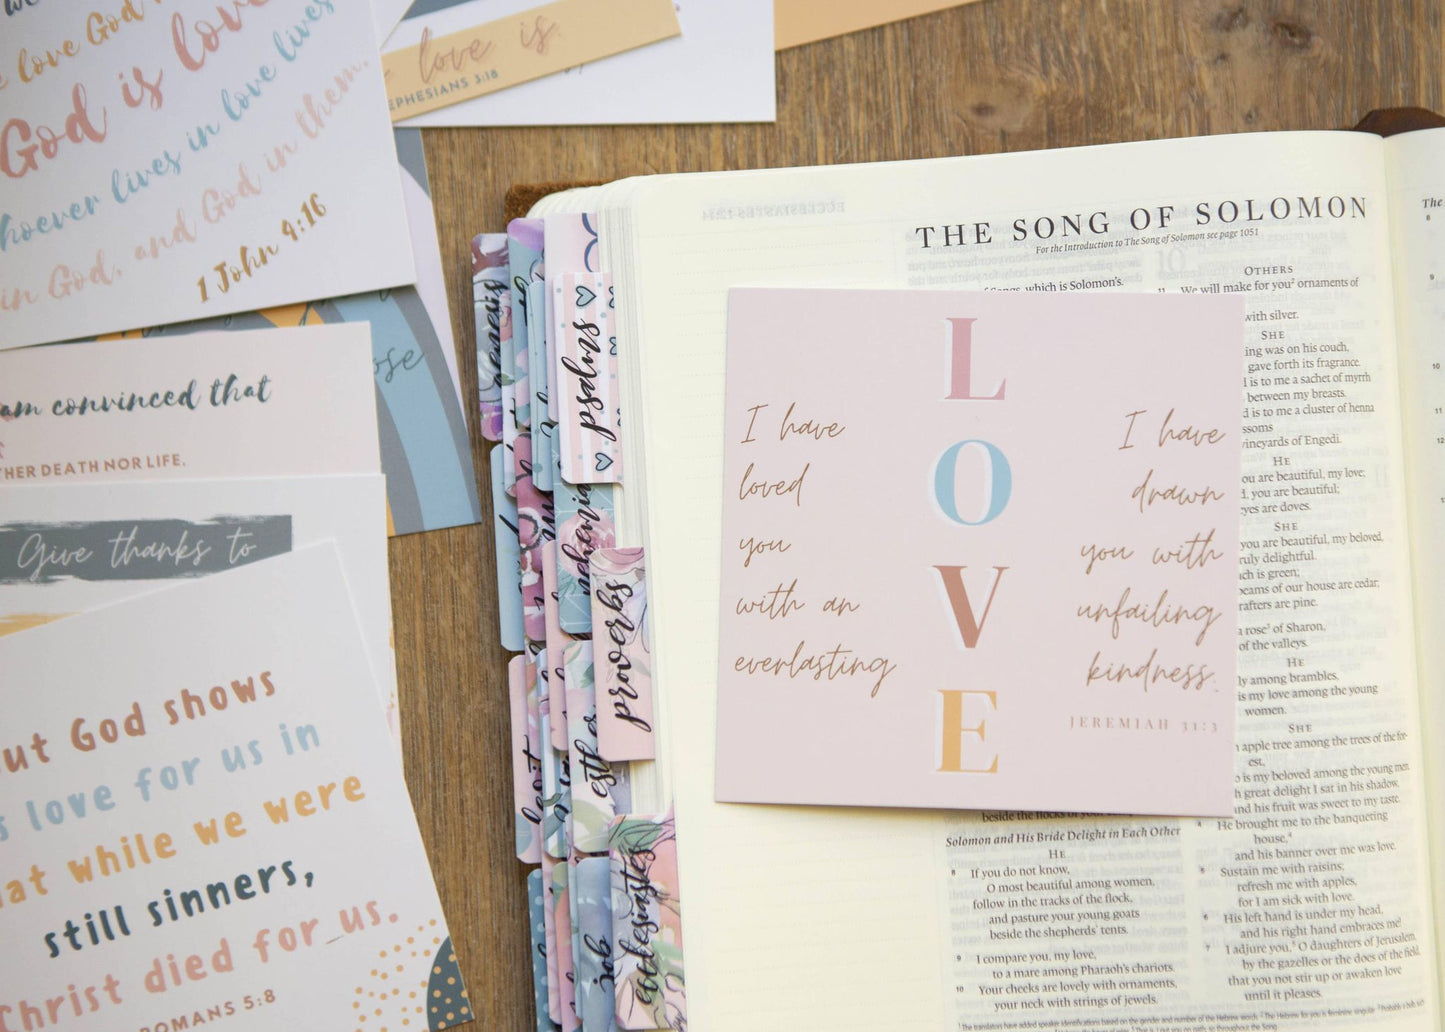 we
love God
God is love
whoever lives in love lives
in God, and God in them.
1 John 4:16
love is.
EPHESIANS 3:18
am convinced that
THER DEATH NOR LIFE,
Give thanks to
ut God shows
s love for us in
hat while we were
still sinners,
Christ died for us.
ROMANS 5:8
genesis
psalms
nehemia
proverbs
esther
job
ecclesiastes
ECCLESIASTES 12:14
THE SONG OF SOLOMON
For the Introduction to The Song of Solomon see page 1051
which is Solomon's.
L
O
V
E
I have
loved
you
with an
everlasting
I have
drawn
you with
unfailing
kindness.
JEREMIAH 31:3
beside the flocks of your
Solomon and His Bride Delight in Each Other
HE
8 If you do not know,
O most beautiful among women,
follow in the tracks of the flock,
and pasture your young goats
beside the shepherds' tents.
9 I compare you, my love,
to a mare among Pharaoh's chariots.
10 Your cheeks are lovely with ornaments,
your neck with strings of jewels.
OTHERS
11 We will make for you² ornaments of
with silver.
SHE
ing was on his couch,
gave forth its fragrance.
is to me a sachet of myrrh
between my breasts.
d is to me a cluster of henna
ssoms
vineyards of Engedi.
HE
ou are beautiful, my love;
you are beautiful;
eyes are doves.
SHE
you are beautiful, my beloved,
ruly delightful.
ch is green;
beams of our house are cedar;
rafters are pine.
a rose³ of Sharon,
of the valleys.
HE
ly among brambles,
is my love among the young
women.
SHE
apple tree among the trees of the for-
est,
o is my beloved among the young men.
h great delight I sat in his shadow,
and his fruit was sweet to my taste.
4 He brought me to the banqueting
house,⁴
and his banner over me was love.
5 Sustain me with raisins;
refresh me with apples,
for I am sick with love.
6 His left hand is under my head,
and his right hand embraces me!
7 I adjure you,⁵ O daughters of Jerusalem,
by the gazelles or the does of the field,
that you not stir up or awaken love
until it pleases.
The